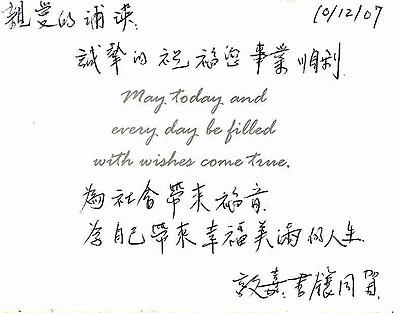 親愛的 10/12/07
誠摯的祝福您事業順利
May today and
every day be filled
with wishes come true.
為社會帶來福音
為自己帶來幸福美滿的人生.
同賀